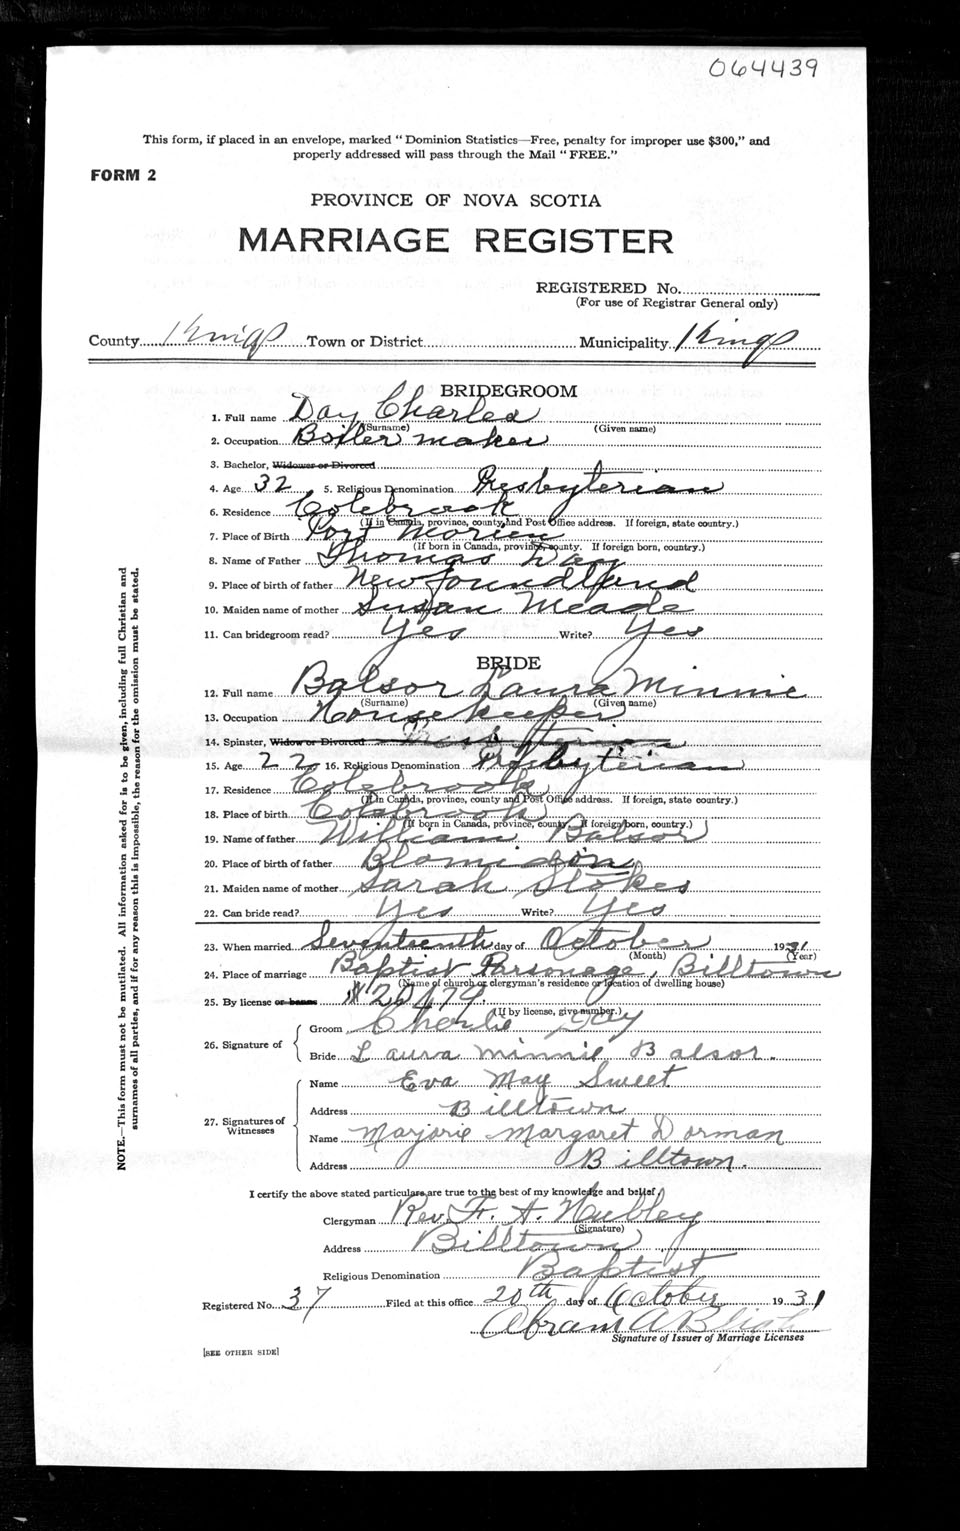 064439
This form, if placed in an envelope, marked "Dominion Statistics—Free, penalty for improper use $300," and
properly addressed will pass through the Mail "FREE."
FORM 2
PROVINCE OF NOVA SCOTIA
MARRIAGE REGISTER
REGISTERED No.
(For use of Registrar General only)
County Kings Town or District Municipality Kings
BRIDEGROOM
1. Full name Day Charles
(Surname) (Given name)
2. Occupation Boiler maker
3. Bachelor, Widower or Divorced
4. Age 32 5. Religious Denomination Presbyterian
6. Residence Colebrook
(If in Canada, province, county and Post Office address. If foreign, state country.)
7. Place of Birth Port Morien
(If born in Canada, province, county. If foreign born, country.)
8. Name of Father Thomas Day
9. Place of birth of father Newfoundland
10. Maiden name of mother Susan Meade
11. Can bridegroom read? Yes Write? Yes
BRIDE
12. Full name Balsor Laura Minnie
(Surname) (Given name)
13. Occupation Housekeeper
14. Spinster, Widow or Divorced
15. Age 22 16. Religious Denomination Presbyterian
17. Residence Colebrook
(If in Canada, province, county and Post Office address. If foreign, state country.)
18. Place of birth Colebrook
(If born in Canada, province, county. If foreign born, country.)
19. Name of father William Balsor
20. Place of birth of father Blomidon
21. Maiden name of mother Sarah Stokes
22. Can bride read? Yes Write? Yes
23. When married Seventeenth day of October 1931
(Month) (Year)
24. Place of marriage Baptist Parsonage, Billtown
(Name of church or clergyman's residence or location of dwelling house)
25. By license or banns 20479.
(If by license, give number.)
26. Signature of
Groom Charlie Day
Bride Laura Minnie Balsor.
27. Signatures of Witnesses
Name Eva May Sweet
Address Billtown
Name Marjorie Margaret Dorman
Address Billtown.
I certify the above stated particulars are true to the best of my knowledge and belief,
Clergyman Rev. F. A. Hubley
(Signature)
Address Billtown
Religious Denomination Baptist
Registered No. 37 Filed at this office 20th day of October 1931
Abram A Bligh
Signature of Issuer of Marriage Licenses
[SEE OTHER SIDE]
NOTE.—This form must not be mutilated. All information asked for is to be given, including full Christian and
surnames of all parties, and if for any reason this is impossible, the reason for the omission must be stated.